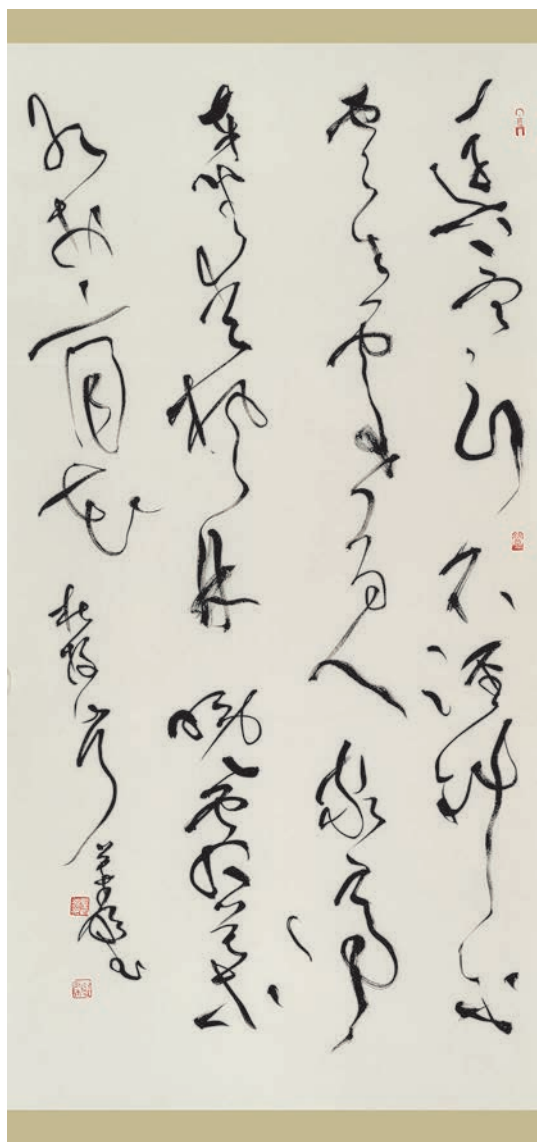 遠上寒山石徑斜
白雲生處有人家停
車坐愛楓林晚霜葉
紅於二月花
杜牧山行
書